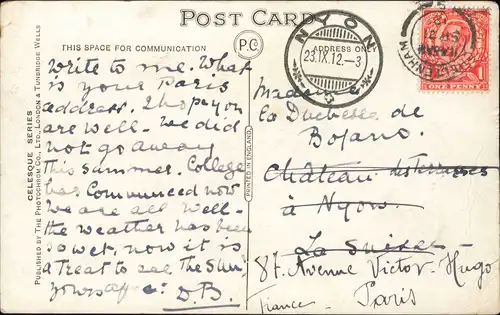 POST CARD
THIS SPACE FOR COMMUNICATION
P.C.
ADDRESS ONLY
NYON
23.IX.12-3
CHELTENHAM
ONE PENNY
CELESQUE SERIES
PUBLISHED BY THE PHOTOCHROM CO., LTD., LONDON & TUNBRIDGE WELLS
PRINTED IN ENGLAND
Write to me. What
is your Paris
address. I hope you
are well - we did
not go away
this summer. College
has Commenced now
we are all well -
the weather has been
so wet, now it is
a treat to see the Sun,
yours aff
D.B.
Madame
La Duchesse de
Bojano
Château des Terrasses
à Nyon
La Suisse
87. Avenue Victor-Hugo
France - Paris